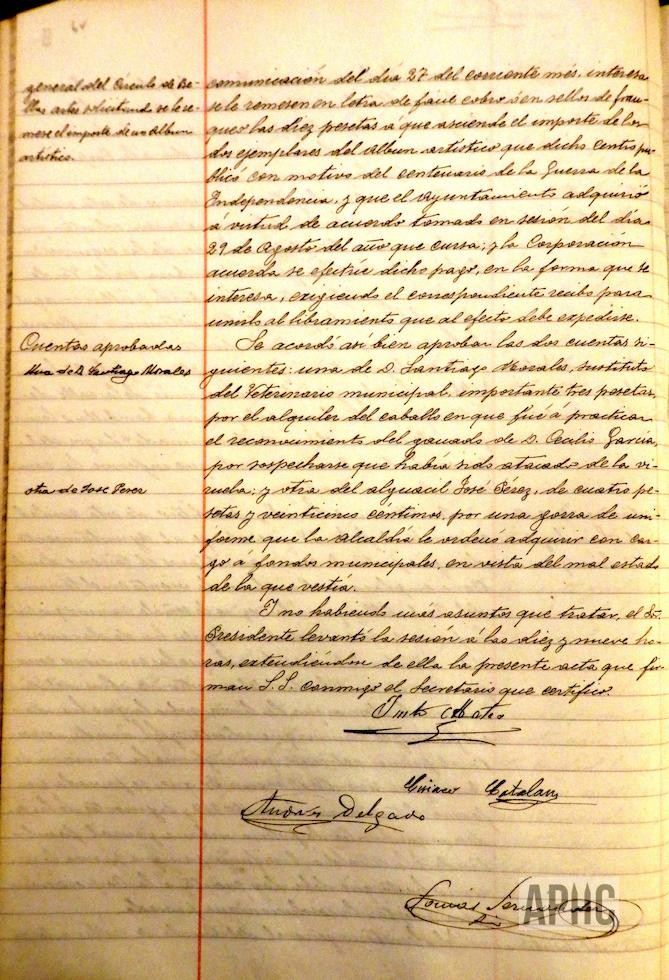 general del Circulo de Be-
llas artes solicitando se le re-
mese el importe de un Album
artistico.
comunicación del día 27 del corriente mes, interesa
se le remesen en letra de facil cobro ó en sellos de fran-
queo las diez pesetas á que asciende el importe de los
dos ejemplares del album artístico que dicho centro pu-
blicó con motivo del centenario de la Guerra de la
Independencia, y que el Ayuntamiento adquirió
á virtud de acuerdo tomado en sesión del día
29 de Agosto del año que cursa; y la Corporación
acuerda se efectúe dicho pago, en la forma que se
interesa, exigiendo el correspondiente recibo para
unirlo al libramiento que al efecto debe expedirse.
Cuentas aprobadas
Una de D. Santiago Morales
Se acordó asi bien aprobar las dos cuentas si-
guientes: una de D. Santiago Morales, sustituto
del Veterinario municipal, importante tres pesetas,
por el alquiler del caballo en que fué á practicar
el reconocimiento del ganado de D. Cecilio García,
por sospecharse que había sido atacado de la vi-
ruela; y otra del alguacil José Pérez, de cuatro pe-
setas y veinticinco céntimos, por una gorra de uni-
forme que la Alcaldía le ordenó adquirir con car-
go á fondos municipales, en vista del mal estado
de la que vestía.
otra de Jose Perez
Y no habiendo más asuntos que tratar, el Sr.
Presidente levantó la sesion á las diez y nueve ho-
ras, extendiéndose de ella la presente acta que fir-
man S.S. conmigo el Secretario que certifico.
Justo Mateo
Ciriaco Catalan
Andrés Delgado
Tomás Fernandez
APHG